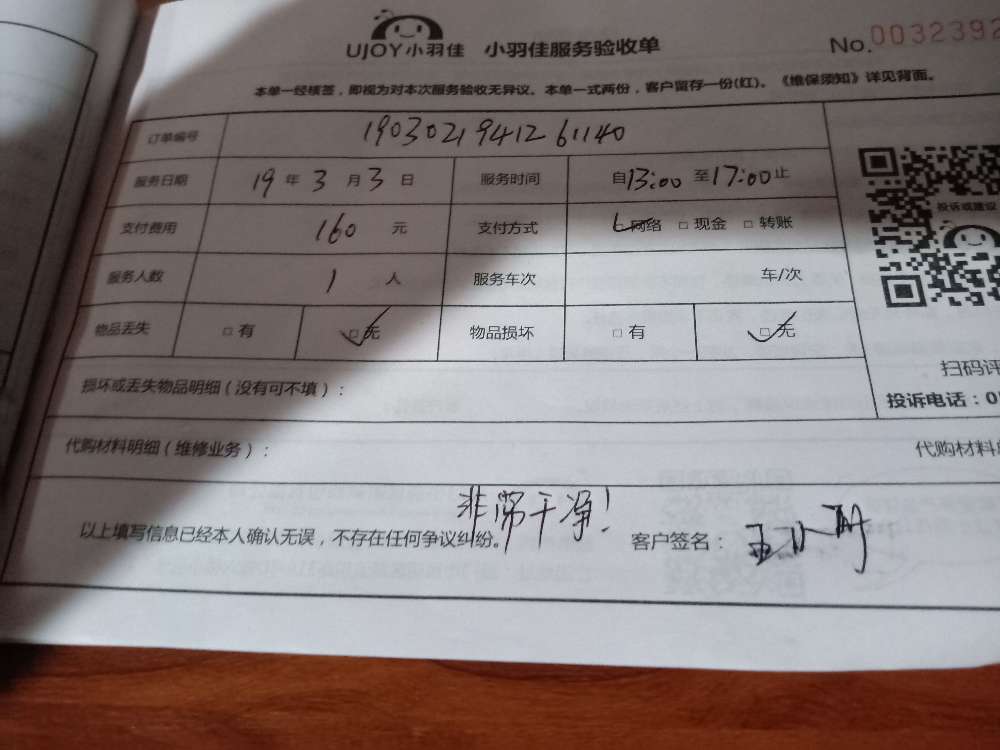 UJOY小羽佳 小羽佳服务验收单 No.0032392
本单一经核签，即视为对本次服务验收无异议。本单一式两份，客户留存一份(红)。《维保须知》详见背面。
订单编号 1903021941261140
服务日期 19年3月3日 服务时间 自13:00至17:00止
投诉或建议
支付费用 160元 支付方式 网络 □现金 □转账
服务人数 1人 服务车次 车/次
物品丢失 □有 □无 物品损坏 □有 □无
扫码评
损坏或丢失物品明细（没有可不填）：
投诉电话：0
代购材料明细（维修业务）： 代购材料
非常干净！
以上填写信息已经本人确认无误，不存在任何争议纠纷。 客户签名：